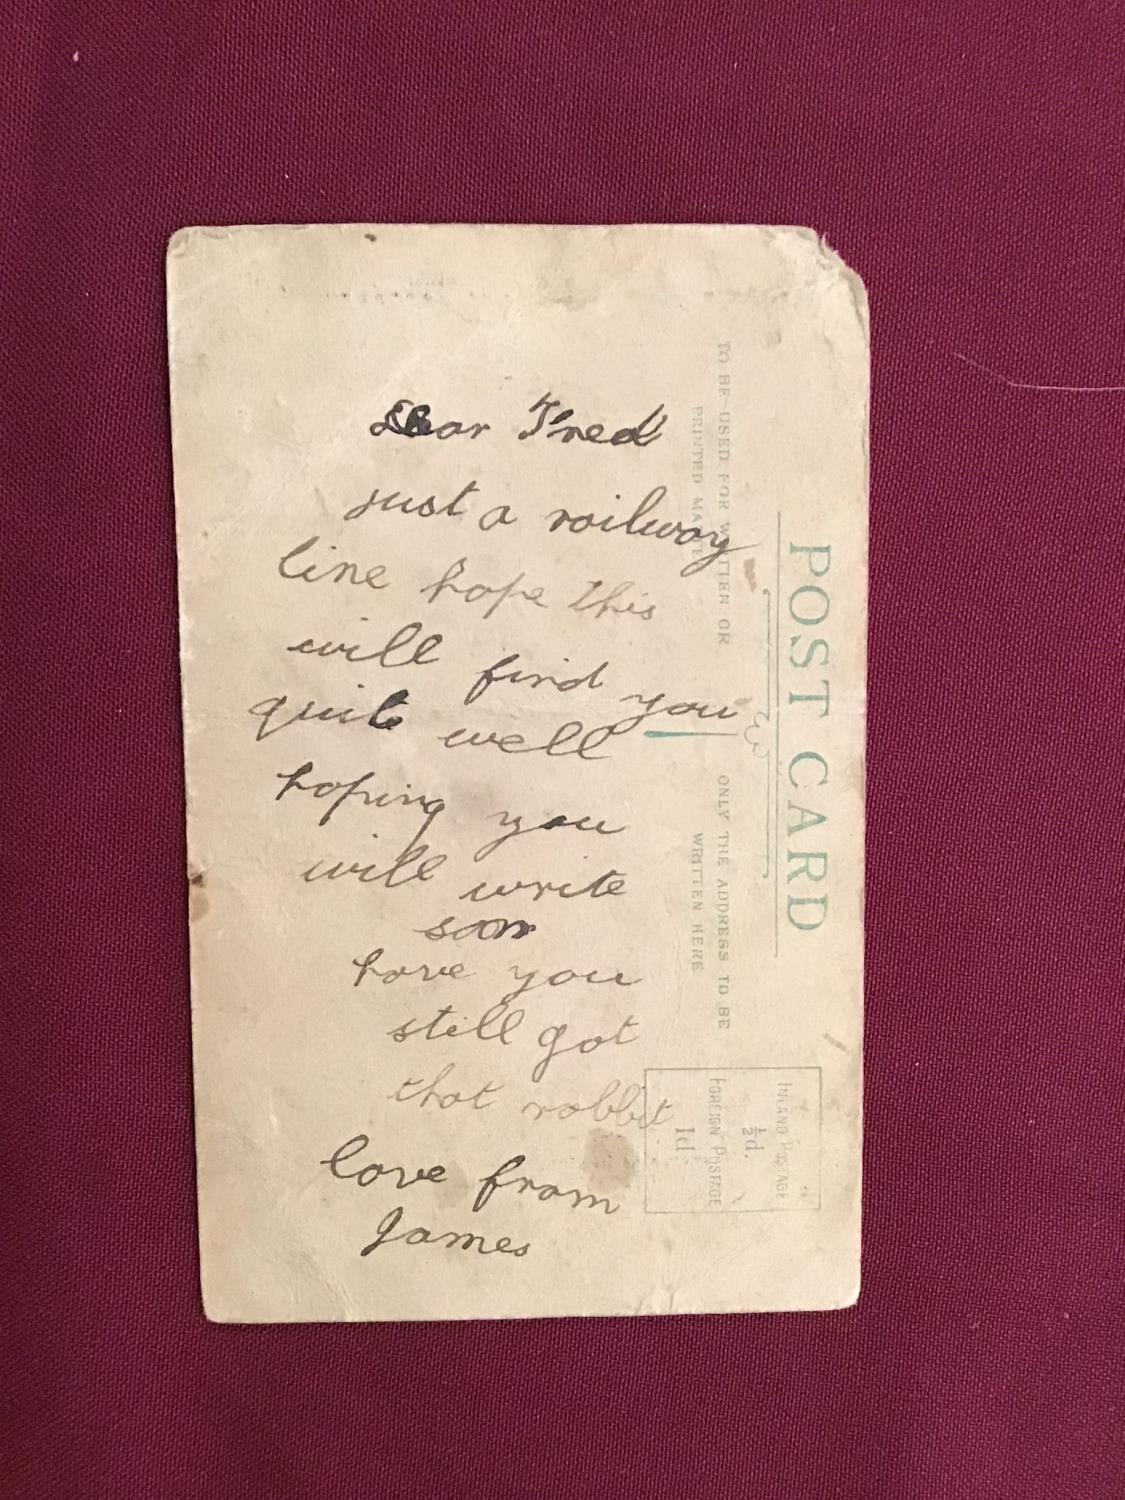 Dear Fred
just a railway
line hope this
will find you
quite well
hoping you
will write
soon
have you
still got
that rabbit
love from
James
POST CARD
TO BE USED FOR WRITTEN OR
PRINTED MATTER
ONLY THE ADDRESS TO BE
WRITTEN HERE
INLAND POSTAGE
½d.
FOREIGN POSTAGE
1d